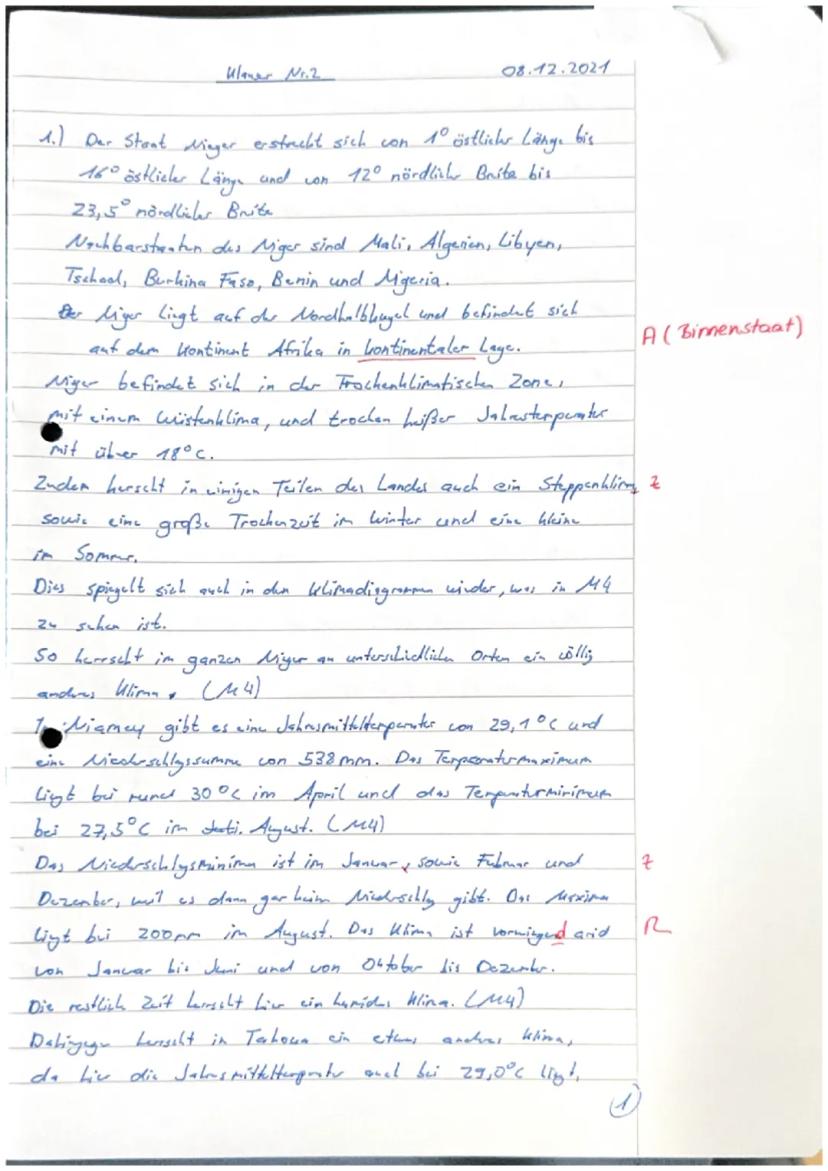 Klausur Nr.2 08.12.2021
1.) Der Staat Nieger erstreckt sich von 1° östlicher Länge bis
16° östlicher Länge und von 12° nördlicher Breite bis
23,5° nördlicher Breite
Nachbarstaaten des Niger sind Mali, Algerien, Libyen,
Tschad, Burkina Faso, Benin und Nigeria.
Der Niger liegt auf der Nordhalbkugel und befindet sich
auf dem Kontinent Afrika in kontinentaler Lage.
A (Binnenstaat)
Niger befindet sich in der Trockenklimatischen Zone,
mit einem Wüstenklima, und trocken heißer Jahrestemperatur
mit über 18°C.
Zudem herscht in einigen Teilen des Landes auch ein Steppenklima Z
sowie eine große Trockenzeit im Winter und eine kleine
im Sommer.
Dies spiegelt sich auch in den Klimadiagrammen wieder, was in M4
zu sehen ist.
So herrscht im ganzen Niger an unterschiedlichen Orten ein völlig
andres Klima. (M4)
In Niamey gibt es eine Jahresmitteltemperatur von 29,1°C und
eine Niederschlagssumme von 538mm. Das Temperaturmaximum
liegt bei rund 30°C im April und das Temperaturminimum
bei 27,5°C im August. (M4)
Das Niederschlagsminimum ist im Januar, sowie Februar und Z
Dezember, weil es dann gar keinen Niederschlag gibt. Das Maximum
liegt bei 200mm im August. Das Klima ist vorwiegend arid R
von Januar bis Juni und von Oktober bis Dezember.
Die restlich Zeit herrscht hier ein humides Klima. (M4)
Dahingegen herrscht in Tahoua ein etwas andres Klima,
da hier die Jahresmitteltemperatur auch bei 29,0°C liegt,
1